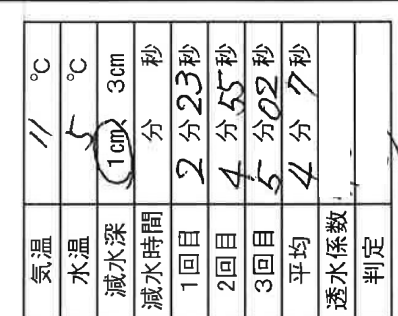 気温 11 ℃
水温 5 ℃
減水深 1cm、 3cm
減水時間 分 秒
1回目 2 分 23 秒
2回目 4 分 55 秒
3回目 5 分 02 秒
平均 4 分 7 秒
透水係数
判定